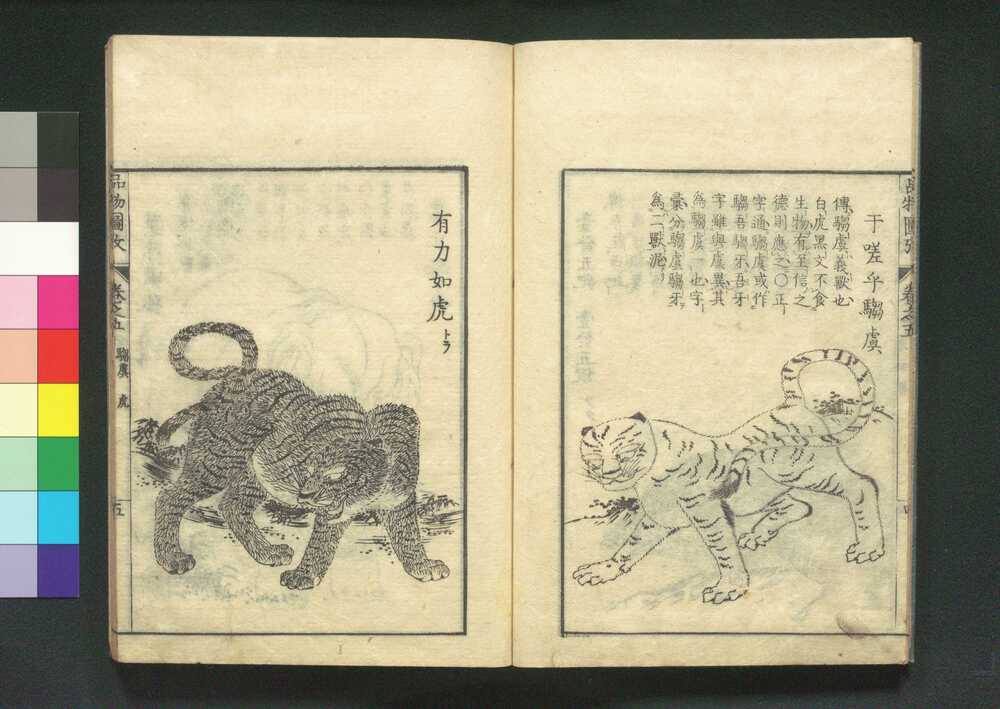 于嗟乎騶虞
傳騶虞義獸也
白虎黒文不食
生物有至信之
德則應之〇正
字通騶虞或作
騶吾騶牙吾牙
字雖與虞異其
為騶虞一也字
彙分騶虞騶牙
為二獸泥
卷之五
有力如虎
トラ
品物圖攷
卷之五
騶虞
虎
五